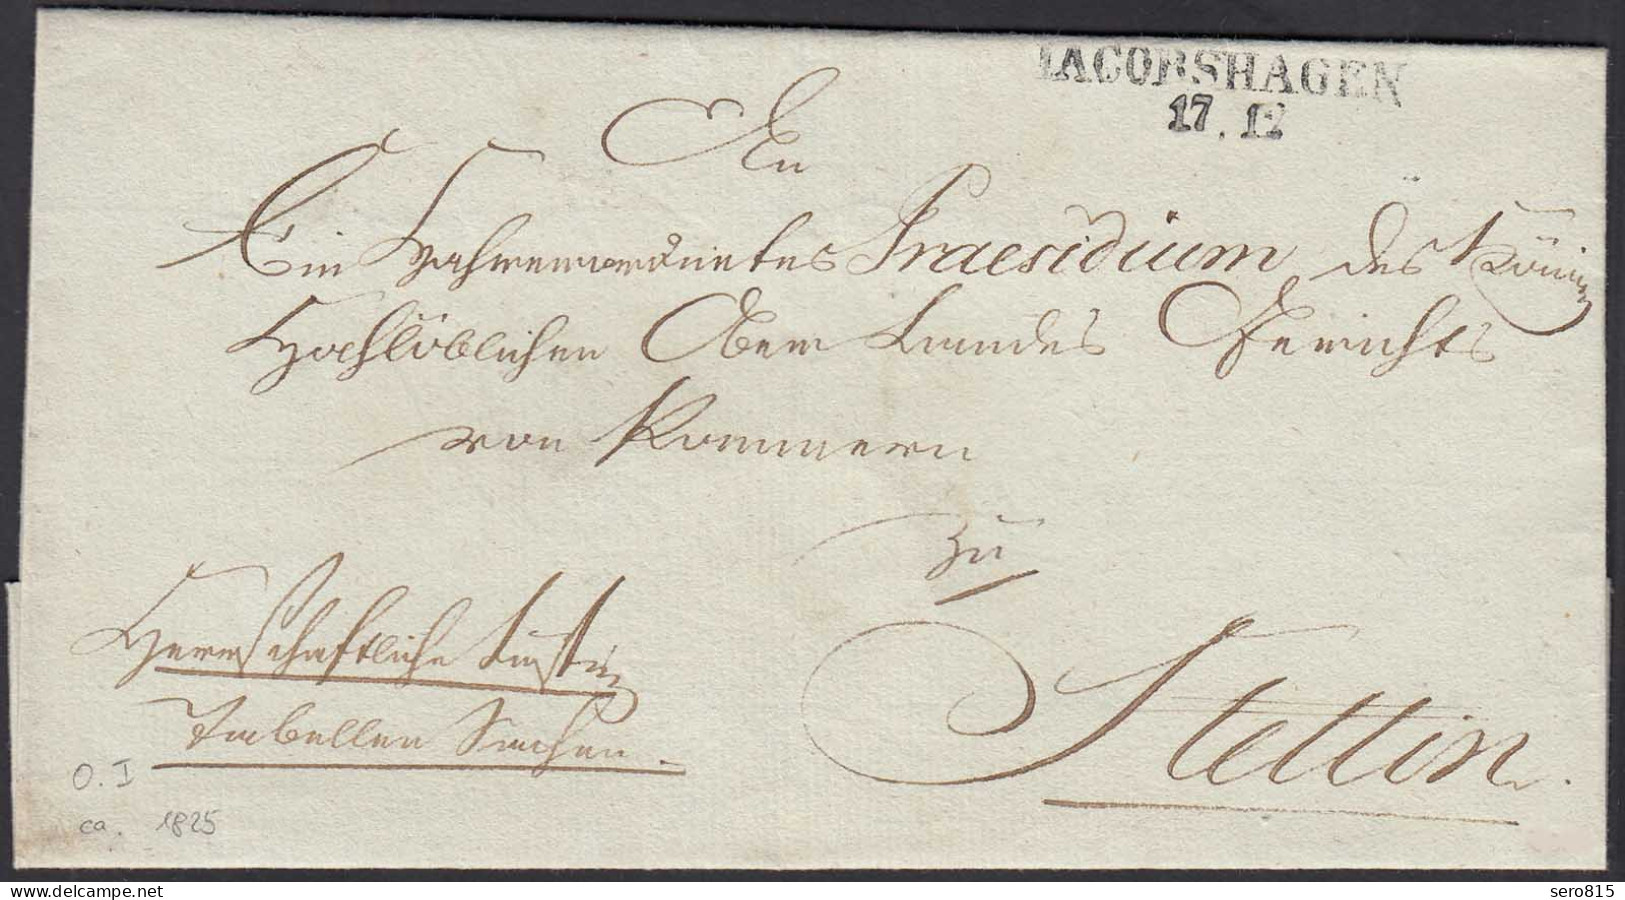 IACOBSHAGEN
17. 12
An
Ein Hochverordnetes Praesidium des Königl
Hochlöblichen Ober Landes Gerichts
von Pommern
zu
Herrschaftliche Justiz
Stettin.
Tabellen Sachen.
O. I
ca. 1825
www.delcampe.net
sero815